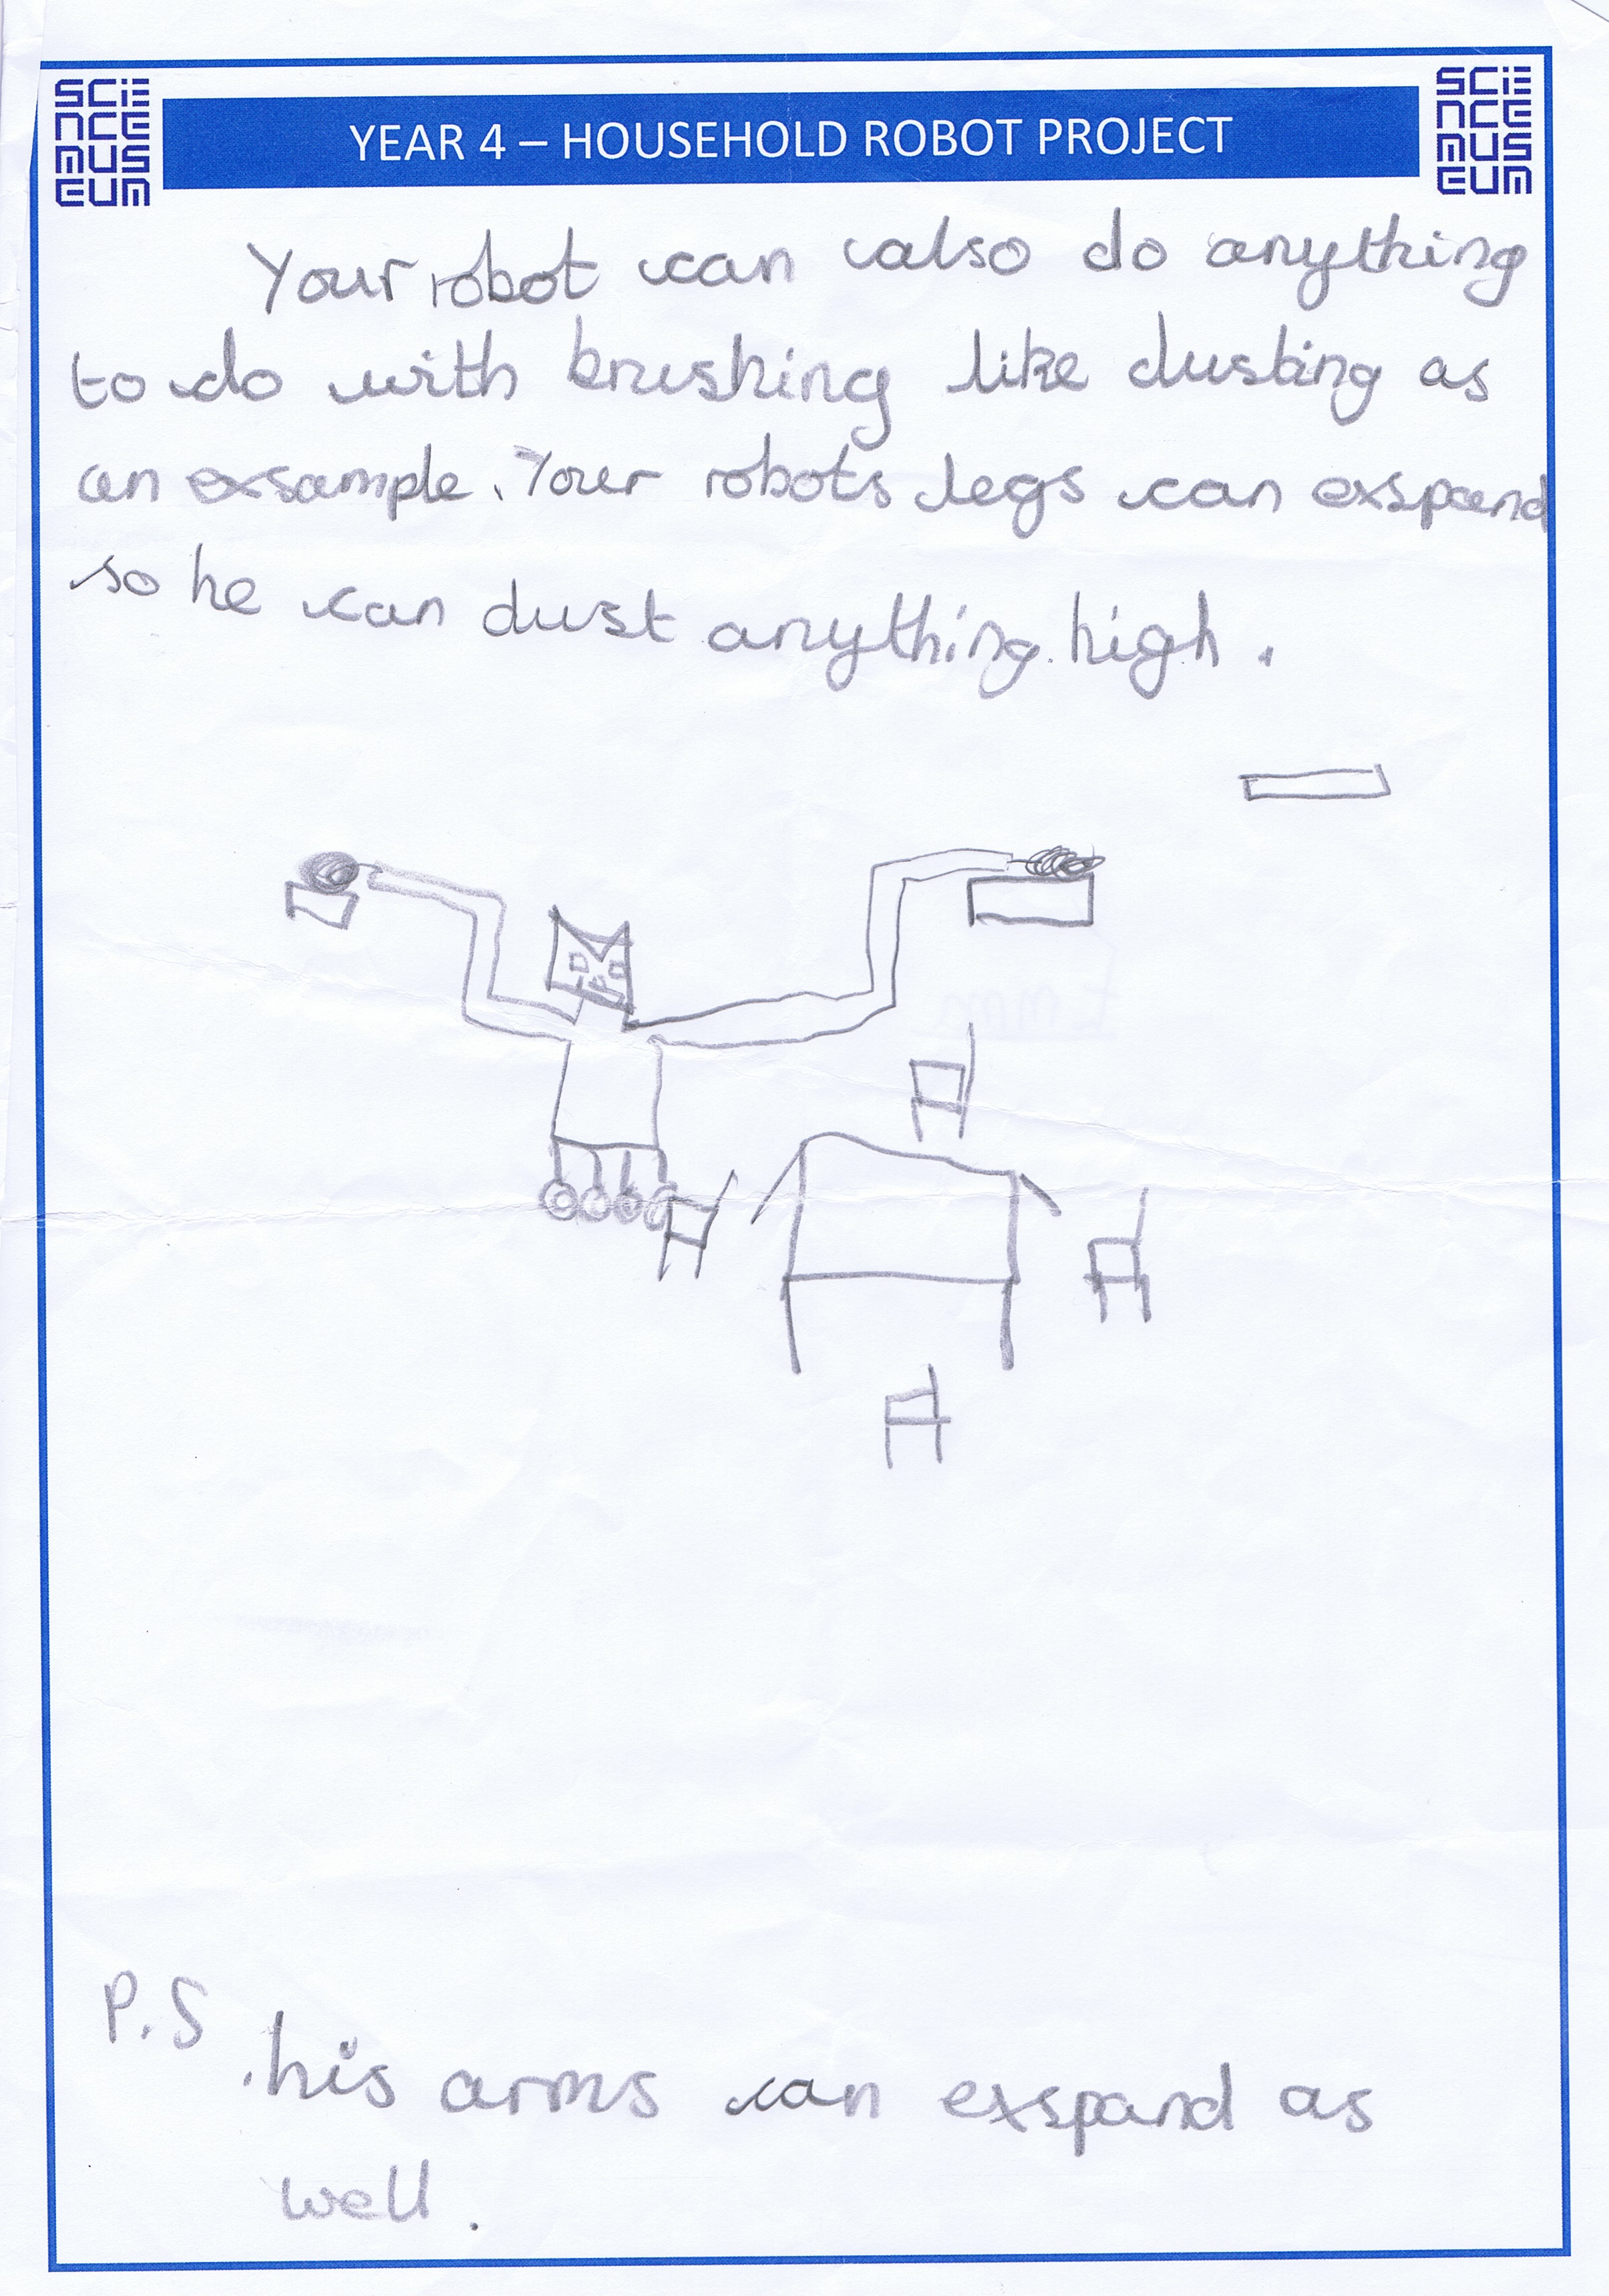 SCIENCE MUSEUM
YEAR 4 – HOUSEHOLD ROBOT PROJECT
SCIENCE MUSEUM
Your robot can also do anything
to do with brushing like dusting as
an exsample. Your robots legs can exspand
so he can dust anything high.
P.S
his arms can exspand as
well.